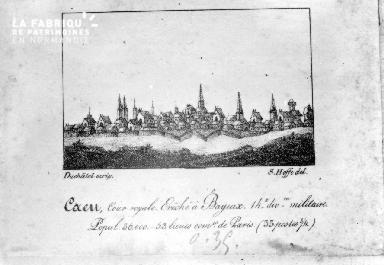 LA FABRIQUE
DE PATRIMOINES
EN NORMANDIE
Duchâtel scrip. S. Hoffe del.
Caen, Cour royale. Evêché à Bayeux. 14.e div.on militaire.
Popul. 36.000. 53 lieues com.es de Paris (33 postes ¾)